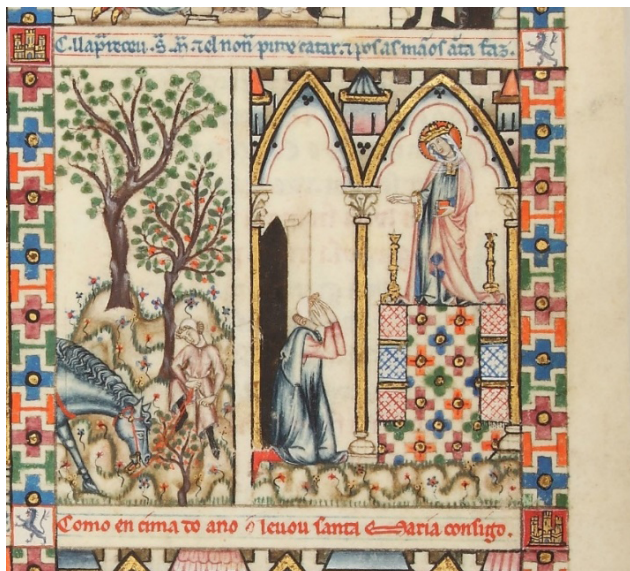 C. ll apareceu. S. M. τ el non pude catar. τ pos as mãos ãta faz.
Como en cima do ano o levou santa Maria consigo.